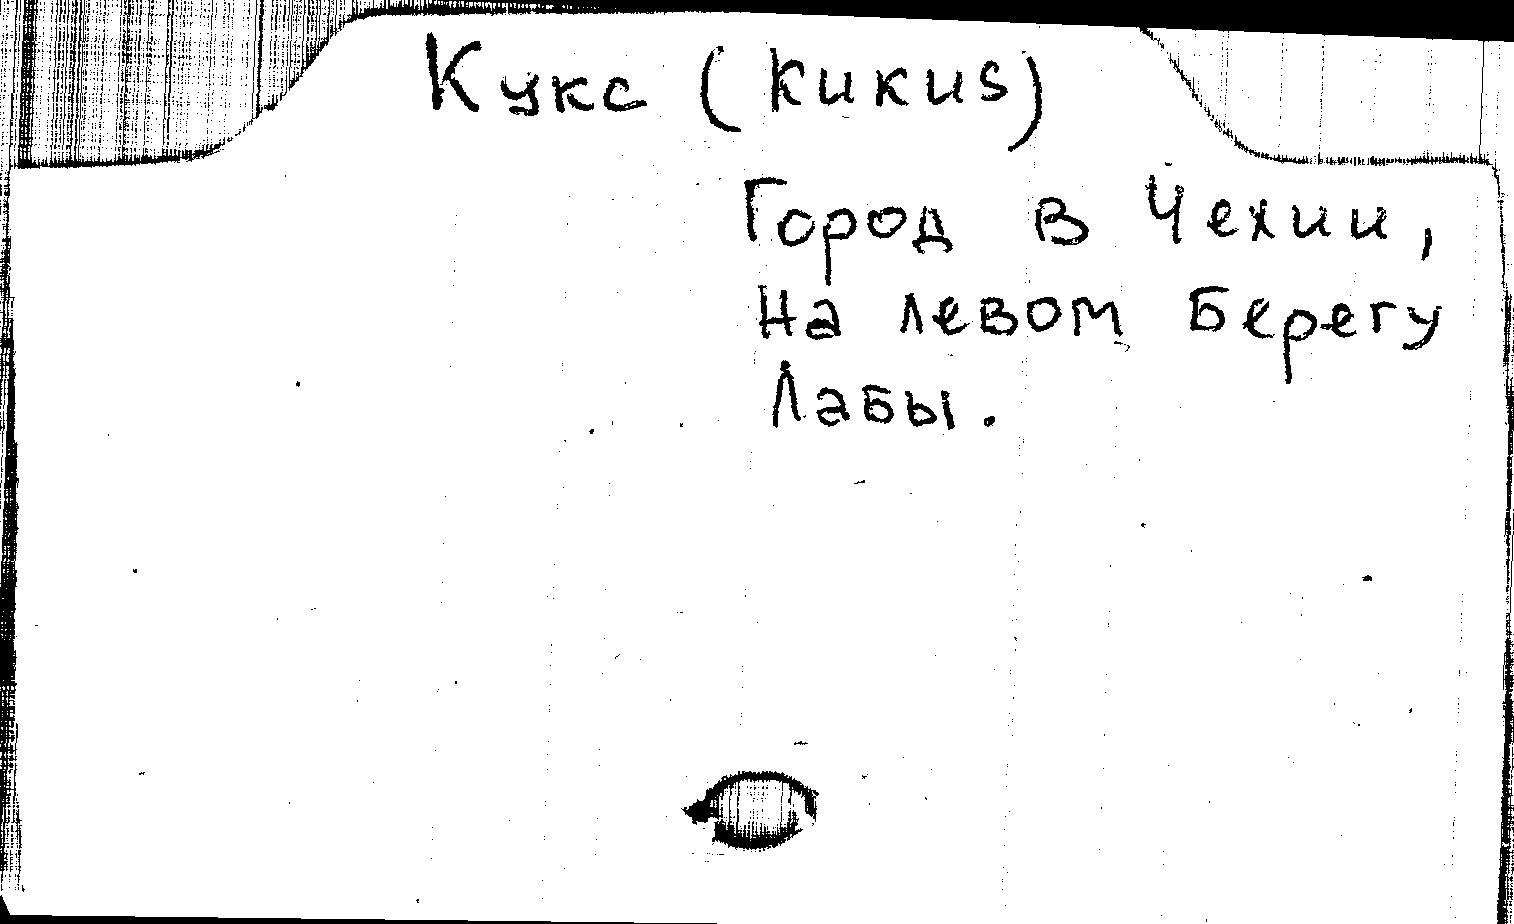 Кукс (Kukus)
Город в Чехии,
на левом берегу
Лабы.